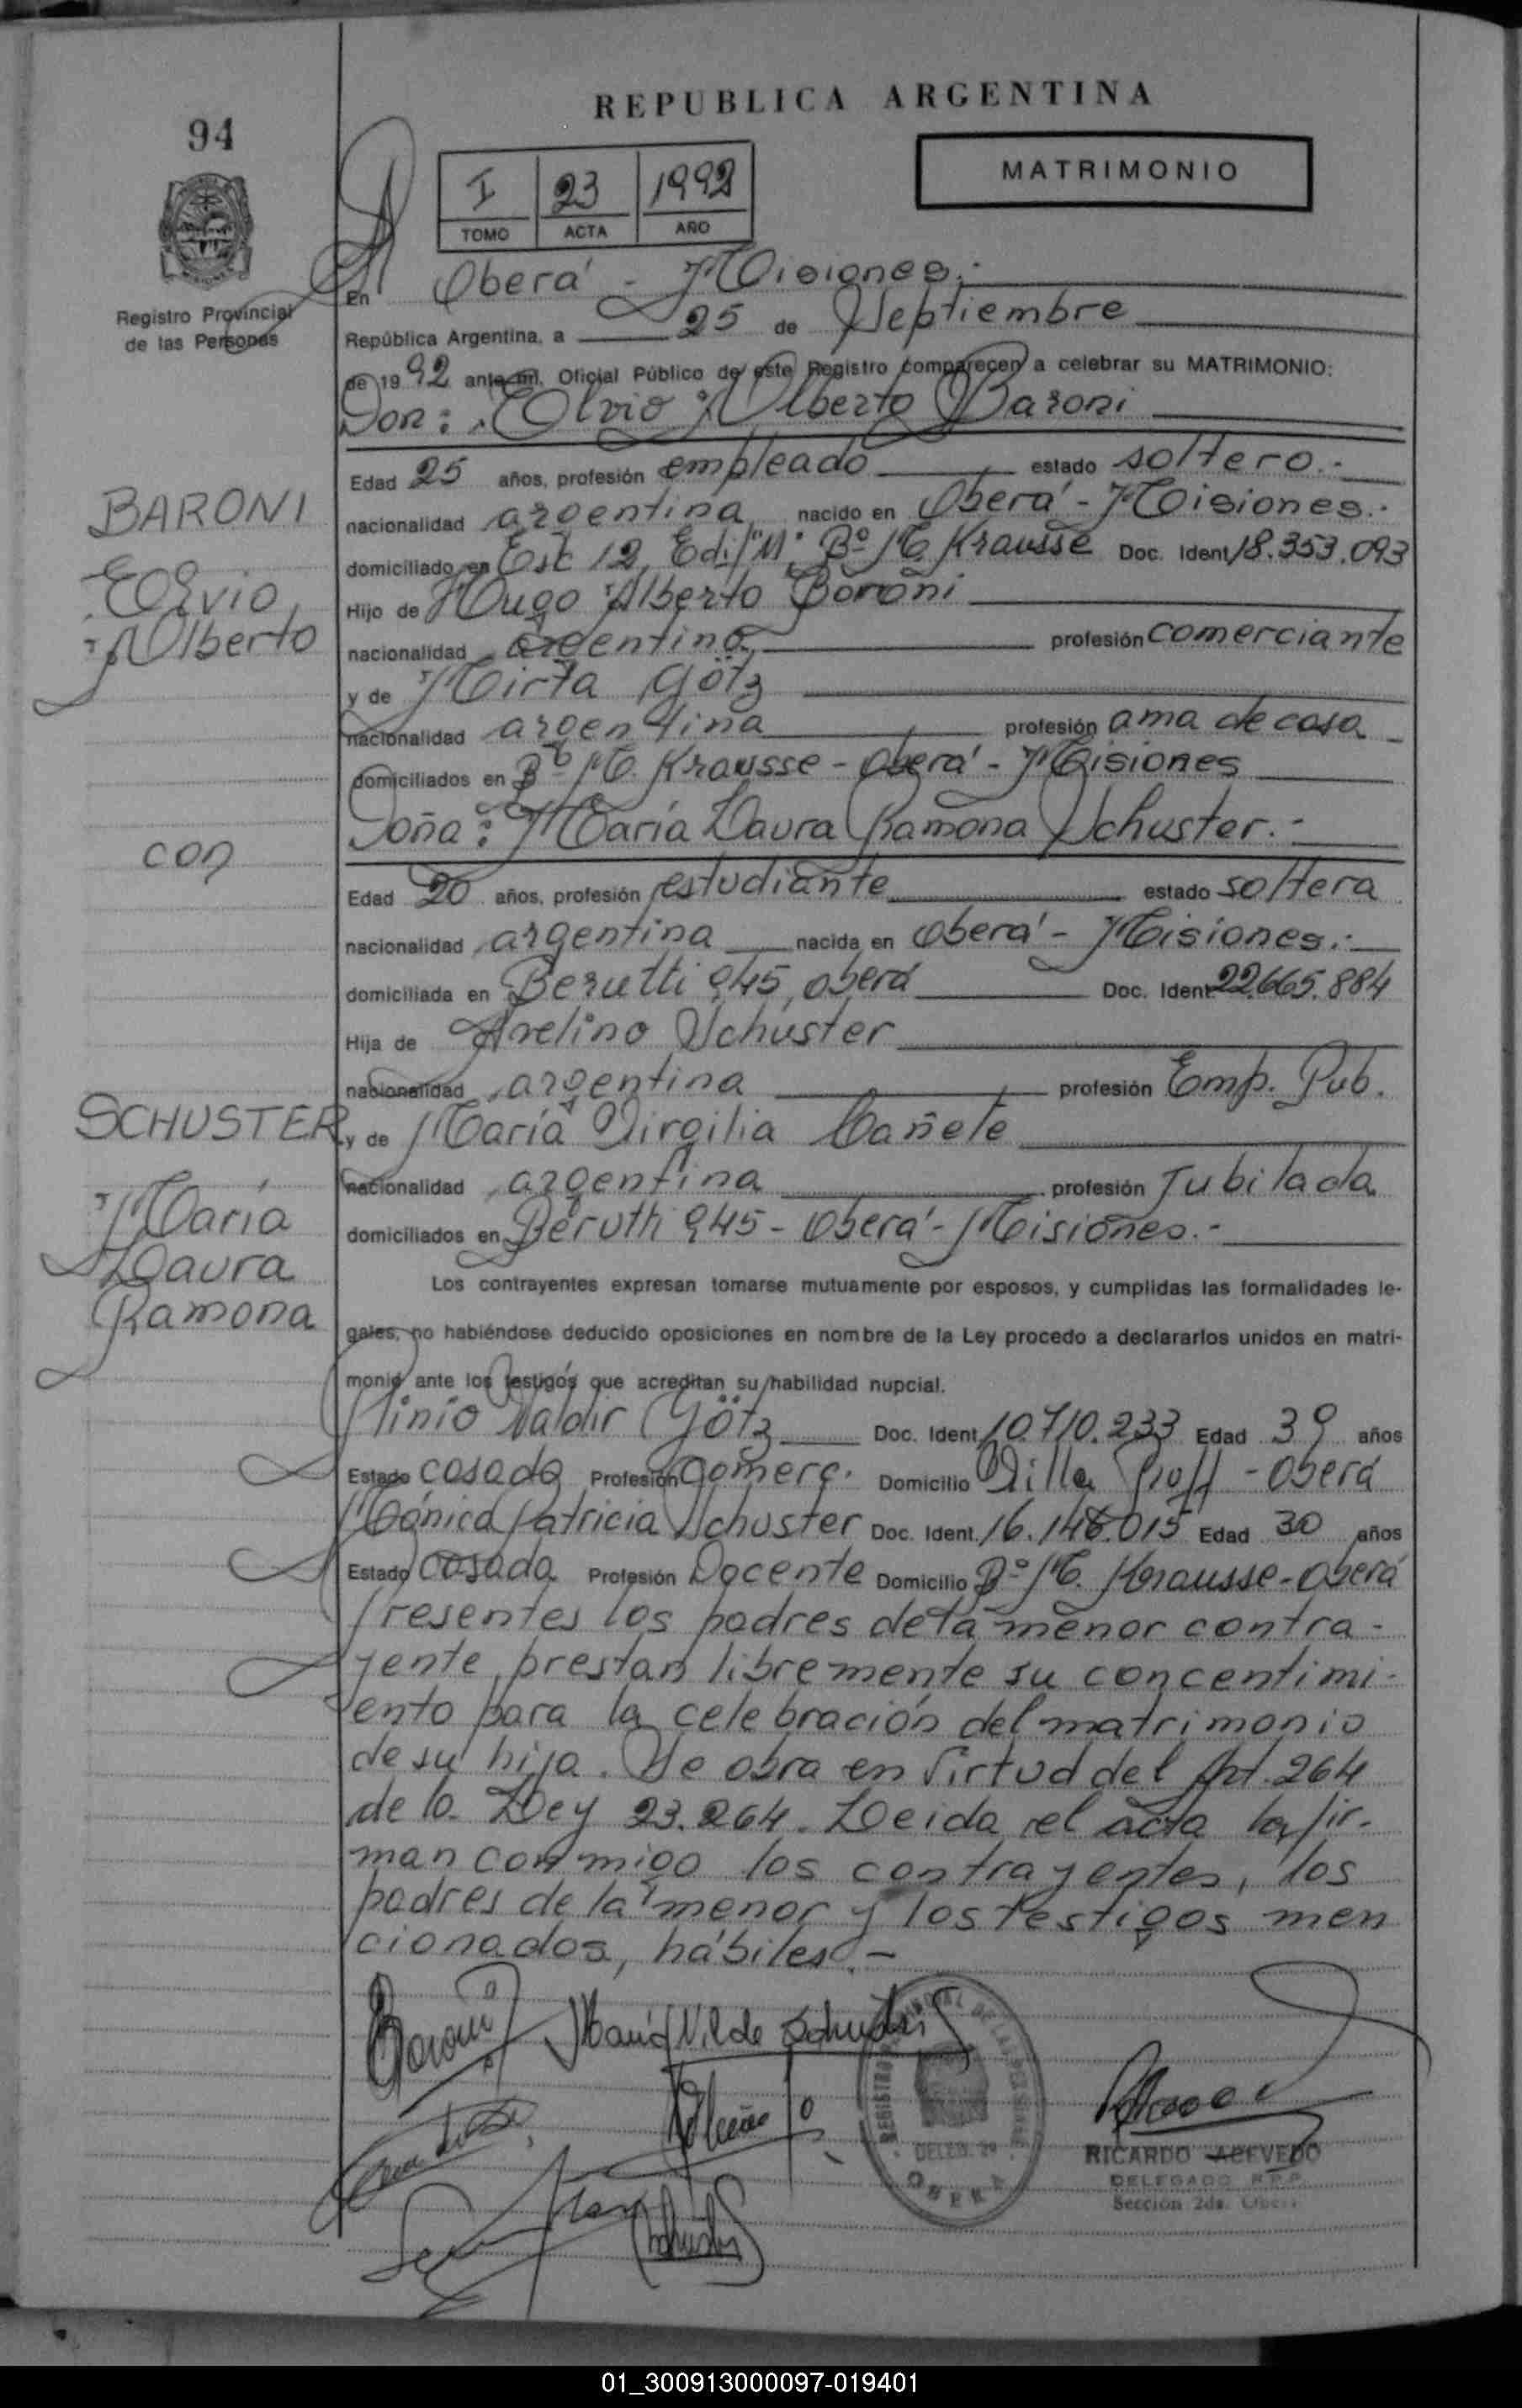 REPUBLICA ARGENTINA
94
MATRIMONIO
I 23 1992
TOMO ACTA AÑO
Registro Provincial
de las Personas
En Oberá - Misiones.-
República Argentina, a 25 de Septiembre
de 1992 ante mí, Oficial Público de este Registro comparecen a celebrar su MATRIMONIO:
Don: Elvio Alberto Baroni
Edad 25 años, profesión empleado estado soltero.-
nacionalidad argentina nacido en Oberá - Misiones.-
domiciliado en Esc 12, Edif "M" Bº M. Krausse Doc. Ident. 18.353.093
Hijo de Hugo Alberto Baroni
nacionalidad argentina profesión comerciante
y de Mirta Götz
nacionalidad argentina profesión ama de casa
domiciliados en Bº M. Krausse - Oberá - Misiones
Doña: María Laura Ramona Schuster.-
Edad 20 años, profesión estudiante estado soltera
nacionalidad argentina nacida en Oberá - Misiones.-
domiciliada en Berutti 945, Oberá Doc. Ident. 22.665.884
Hija de Avelino Schuster
nacionalidad argentina profesión Emp. Pub.
y de María Virgilia Cañete
nacionalidad argentina profesión Jubilada
domiciliados en Berutti 945 - Oberá - Misiones.-
BARONI
Elvio
Alberto
con
SCHUSTER
María
Laura
Ramona
Los contrayentes expresan tomarse mutuamente por esposos, y cumplidas las formalidades le-
gales, no habiéndose deducido oposiciones en nombre de la Ley procedo a declararlos unidos en matri-
monio ante los testigos que acreditan su habilidad nupcial.
Plinio Valdir Götz Doc. Ident. 10.710.233 Edad 39 años
Estado casado Profesión Comerc. Domicilio Villa - Oberá
Mónica Patricia Schuster Doc. Ident. 16.146.015 Edad 30 años
Estado casada Profesión Docente Domicilio Bº M. Krausse - Oberá
Presentes los padres de la menor contra-
yente, prestan libremente su concentimi-
ento para la celebración del matrimonio
de su hija. Se obra en Virtud del Art. 264
de la Ley 23.264. Leida el acta la fir-
man conmigo los contrayentes, los
padres de la menor y los testigos men
cionados, hábiles.-
Baroni
DELEG. 29
OBERA
RICARDO ACEVEDO
DELEGADO R.P.P.
Sección 2da. Oberá
01_300913000097-019401